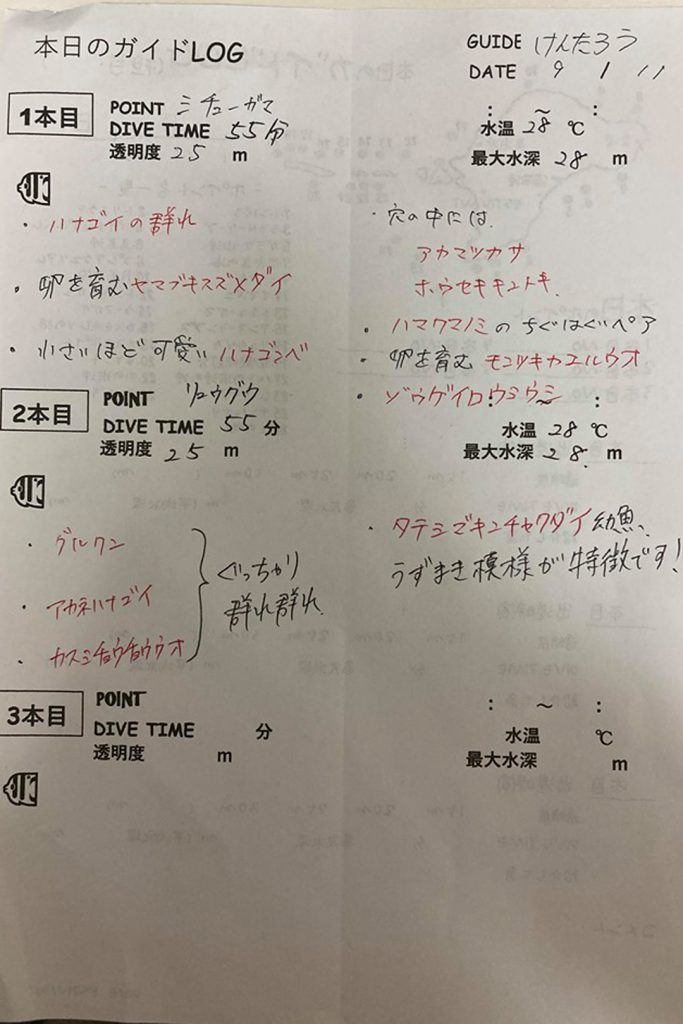 本日のガイドLOG
GUIDE けんたろう
DATE 9 / 11
1本目
POINT ミチューガマ
DIVE TIME 55分
透明度 25 m
: ～ :
水温 28 ℃
最大水深 28 m
・ハナゴイの群れ
・卵を育むヤマブキスズメダイ
・小さいほど可愛いハナゴンベ
・穴の中には、
アカマツカサ
ホウセキキントキ
・ハマクマノミのちぐはぐペア
・卵を育む モンツキカエルウオ
・ゾウゲイロウミウシ
2本目
POINT リュウグウ
DIVE TIME 55 分
透明度 25 m
: ～ :
水温 28 ℃
最大水深 28 m
・グルクン
・アカネハナゴイ
・カスミチョウチョウウオ
ぐっちゃり
群れ群れ
・タテジマキンチャクダイ幼魚、
うずまき模様が特徴です!
3本目
POINT
DIVE TIME 分
透明度 m
: ～ :
水温 ℃
最大水深 m